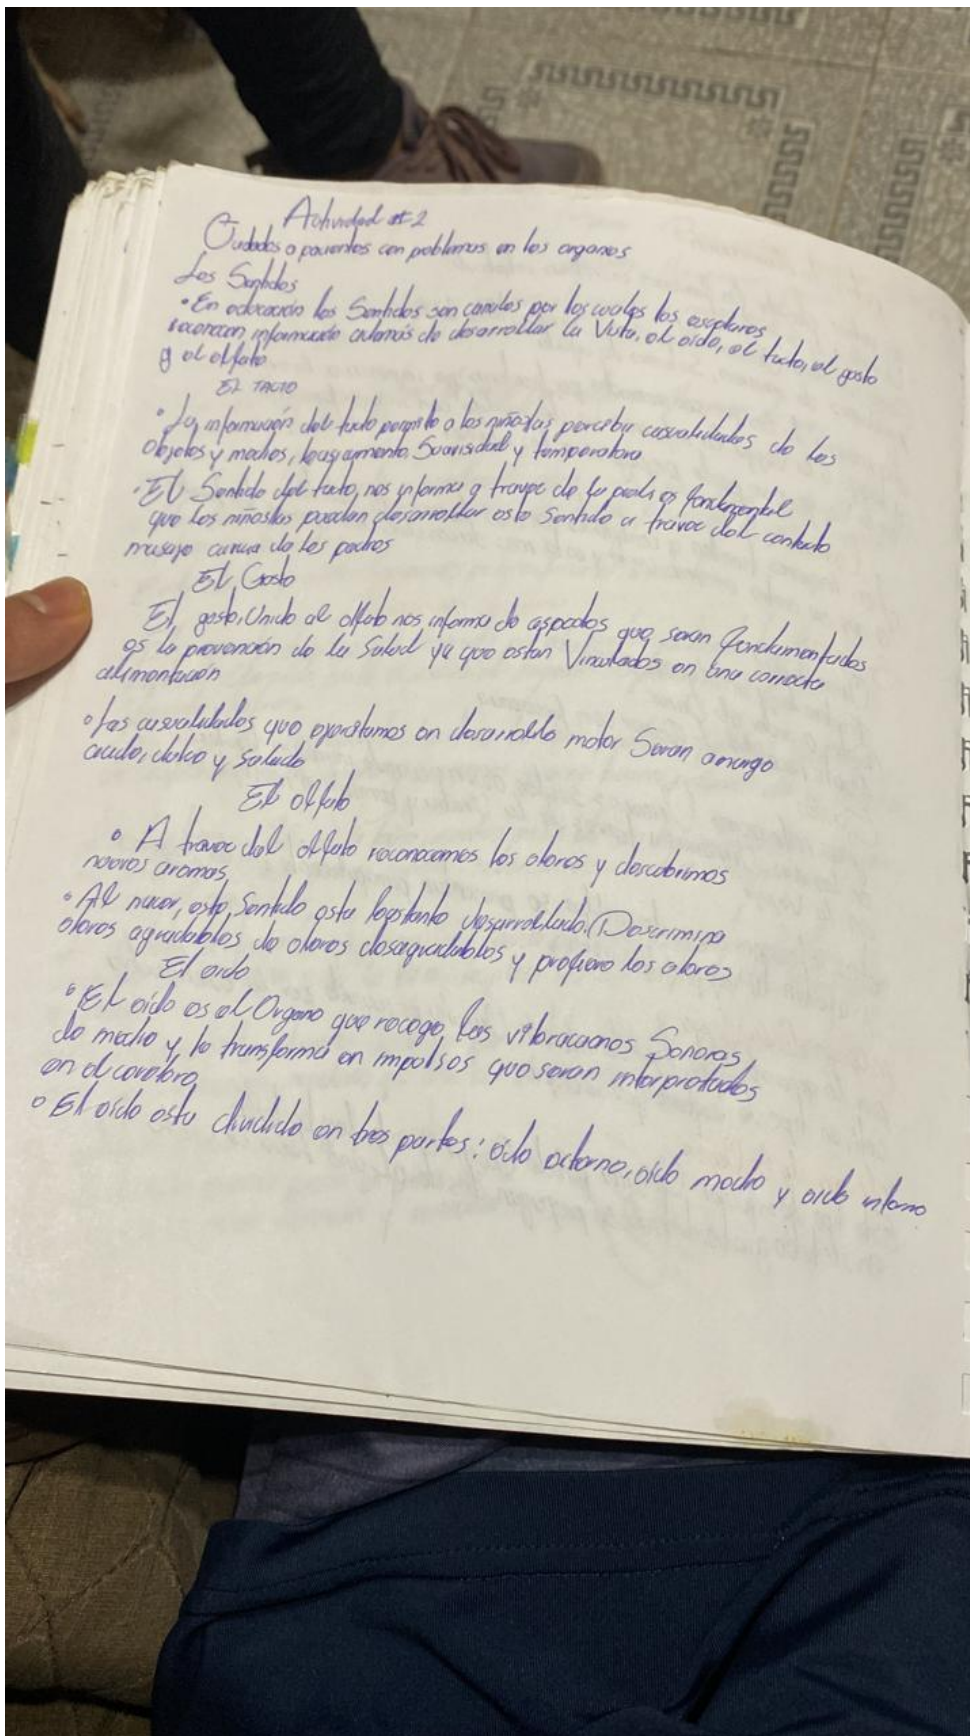 Actividad #2
Cuidados a pacientes con problemas en los organos
Los Sentidos
• En educación los Sentidos son canales por los cuales los escolares
reconocen información además de desarrollar la Vista, el oído, el tacto, el gosto
y el olfato
EL TACTO
• La información del tacto permite a los niños/as percibir casualidades de los
objetos y medios, Suavisidad y temperatura
• El Sentido del tacto, nos informa a traves de la piel, es fondamental
que los niños/as puedan desarrollar este Sentido a travez del contacto
masaje de los padres
El Gosto
El gosto, Unido al olfato nos informa de aspectos que seran fondamentados
es la prevención de la Salud ya que estan Vinculados en una correcta
alimentación
• Las casualidades que en desarrollo motor Seran amargo
acido, dulce y Salado
El olfato
• A travez del olfato reconocemos los olores y descobrimos
nuevos aromas
• Al nacer, este Sentido esta bastante desarrollado. Descrimina
olores agradables de olores desagradables y prefiere los olores
El oido
• El oído es el Organo que recoge las vibraciones Sonoras
de medio y lo transforma en impolsos que seran interpretados
en el cerebro
• El oido esta dividido en tres partes: oido externo, oido medio y oido interno